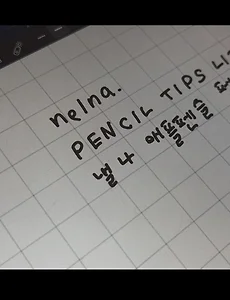 nelna.
PENCIL TIPS
낼나 애플펜슬